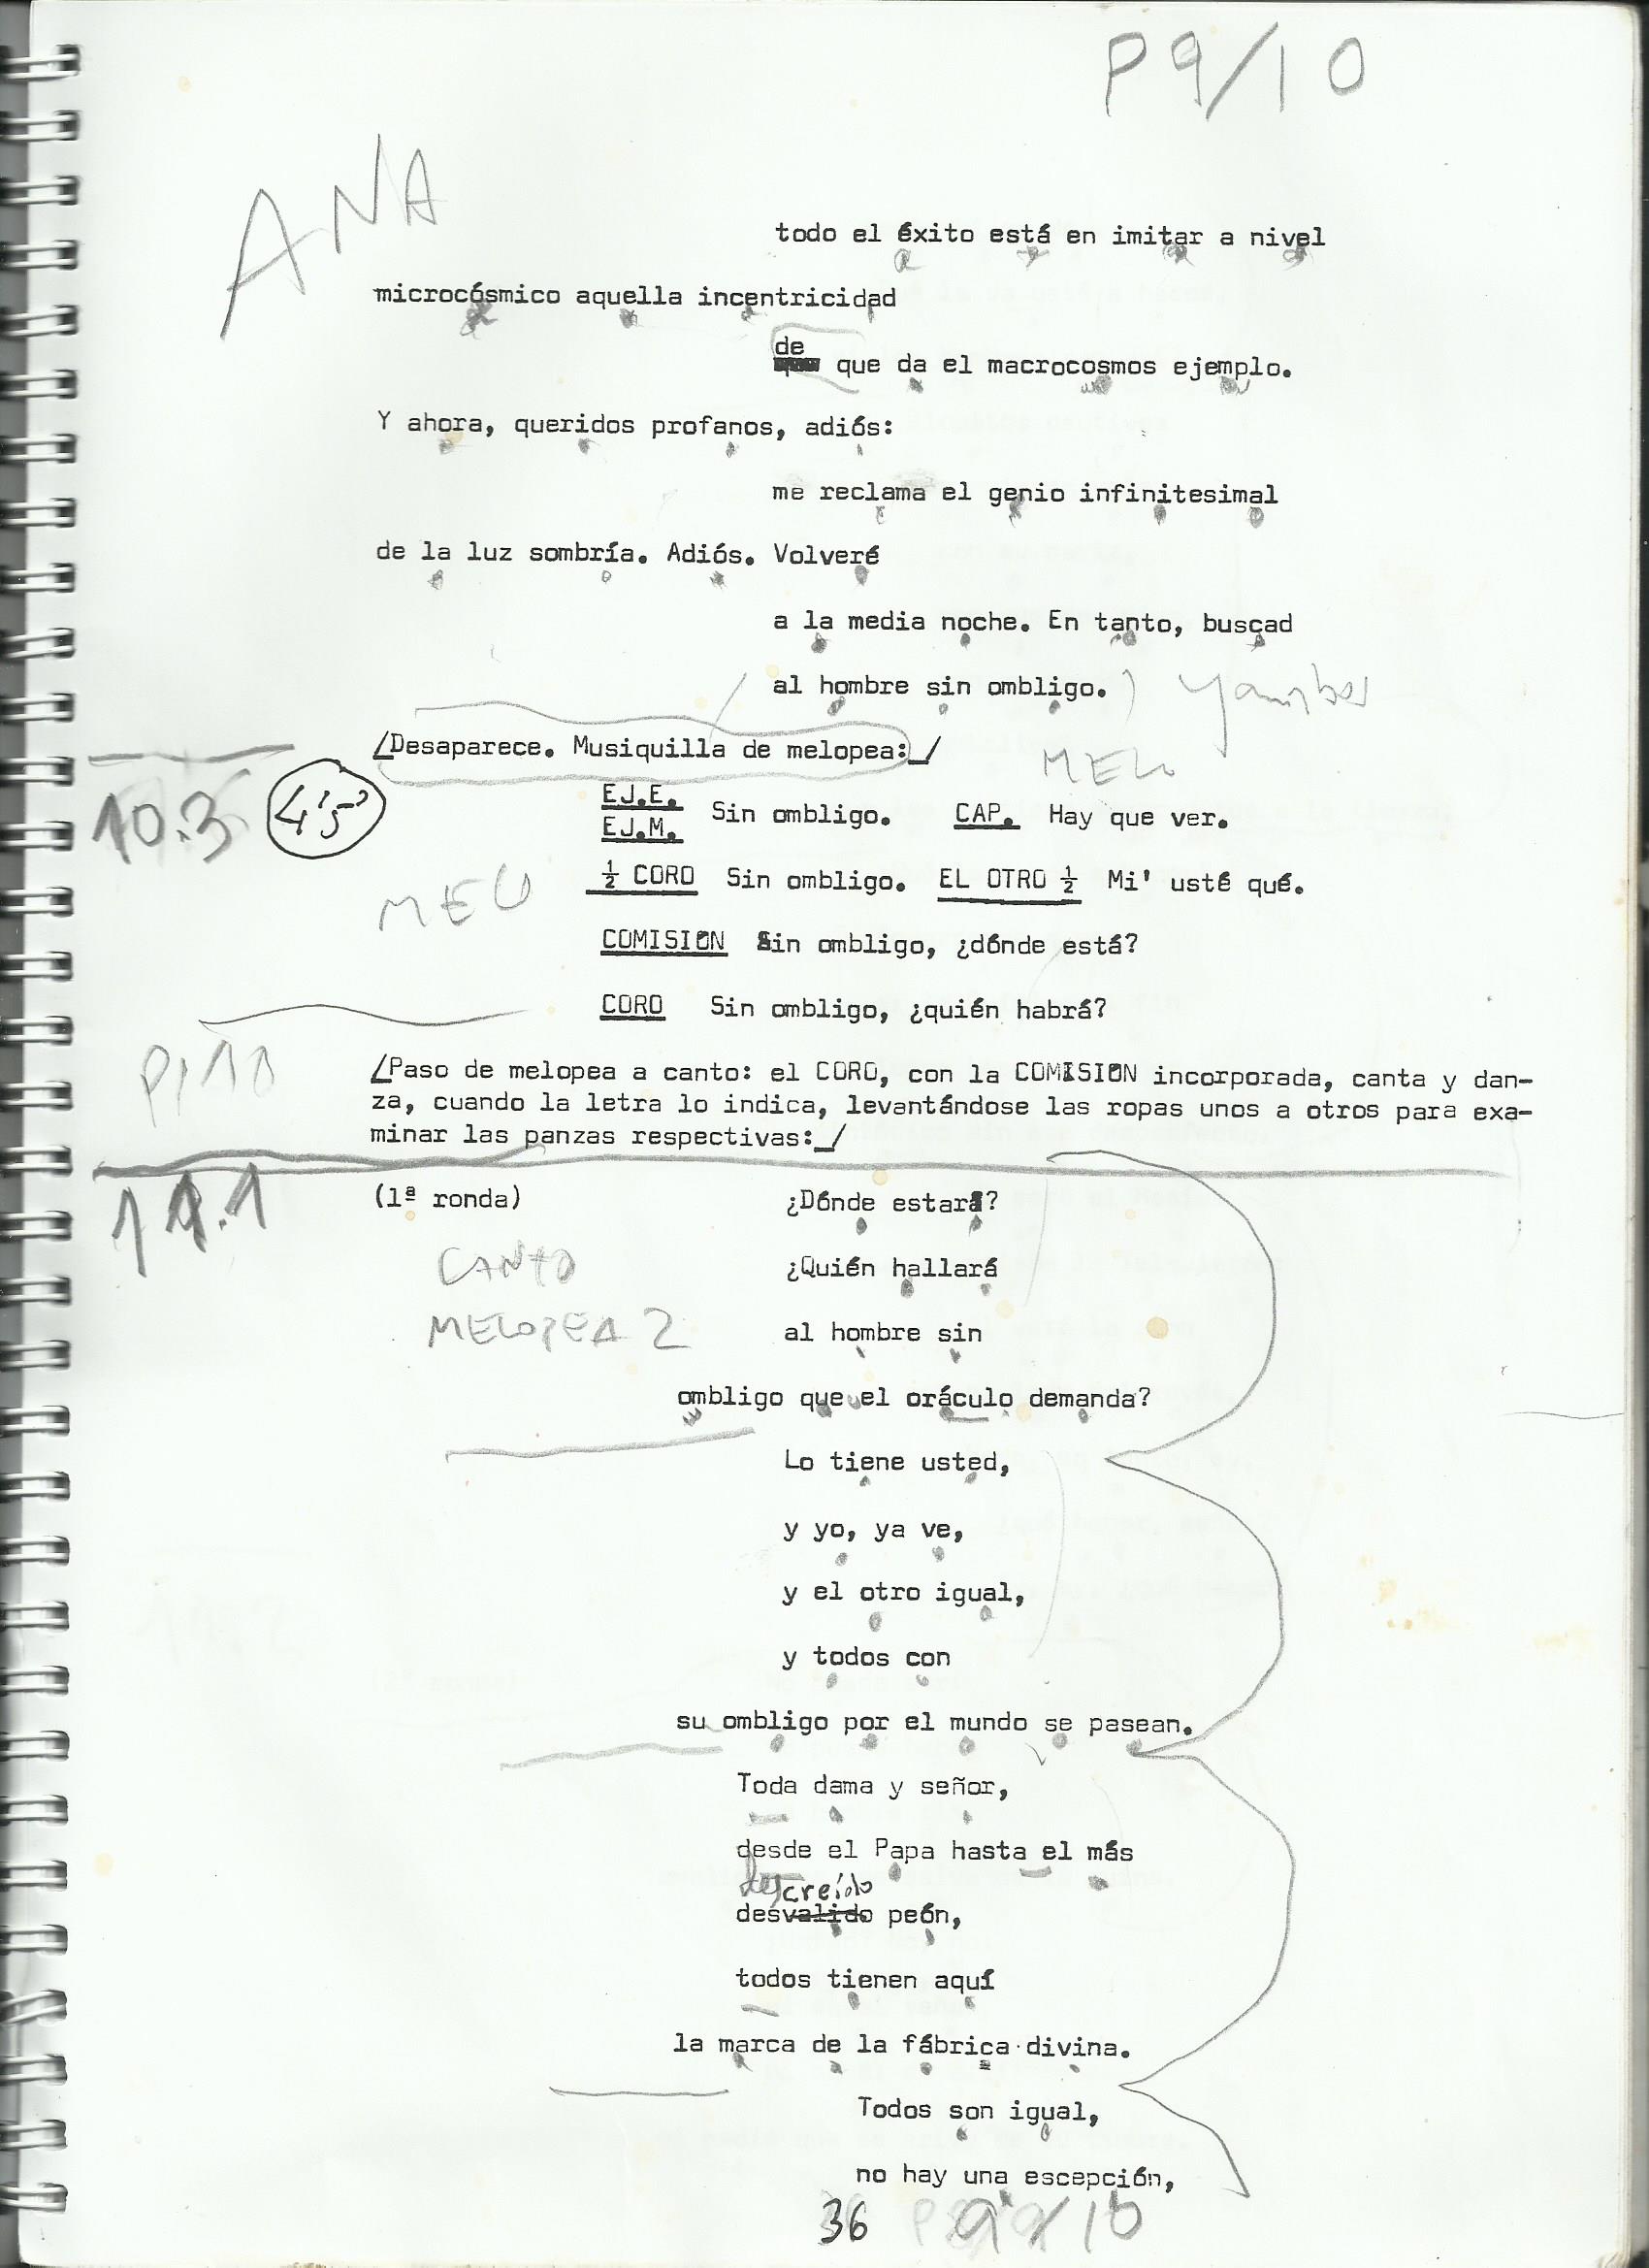 P9/10
ANA
todo el éxito está en imitar a nivel
microcósmico aquella incentricidad
de que da el macrocosmos ejemplo.
Y ahora, queridos profanos, adiós:
me reclama el genio infinitesimal
de la luz sombría. Adiós. Volveré
a la media noche. En tanto, buscad
al hombre sin ombligo. ) Yambos
/Desaparece. Musiquilla de melopea:_/
MELO
10.3 4'5"
EJ.E.
EJ.M. Sin ombligo. CAP. Hay que ver.
MELO
½ CORO Sin ombligo. EL OTRO ½ Mi' usté qué.
COMISION Sin ombligo, ¿dónde está?
CORO Sin ombligo, ¿quién habrá?
/Paso de melopea a canto: el CORO, con la COMISION incorporada, canta y dan-
za, cuando la letra lo indica, levantándose las ropas unos a otros para exa-
minar las panzas respectivas:_/
11.1
(1ª ronda) ¿Dónde estará?
CANTO
¿Quién hallará
MELOPEA 2
al hombre sin
ombligo que el oráculo demanda?
Lo tiene usted,
y yo, ya ve,
y el otro igual,
y todos con
su ombligo por el mundo se pasean.
Toda dama y señor,
desde el Papa hasta el más
descreído
desvalido peón,
todos tienen aquí
la marca de la fábrica divina.
Todos son igual,
no hay una escepción,
36 9/10